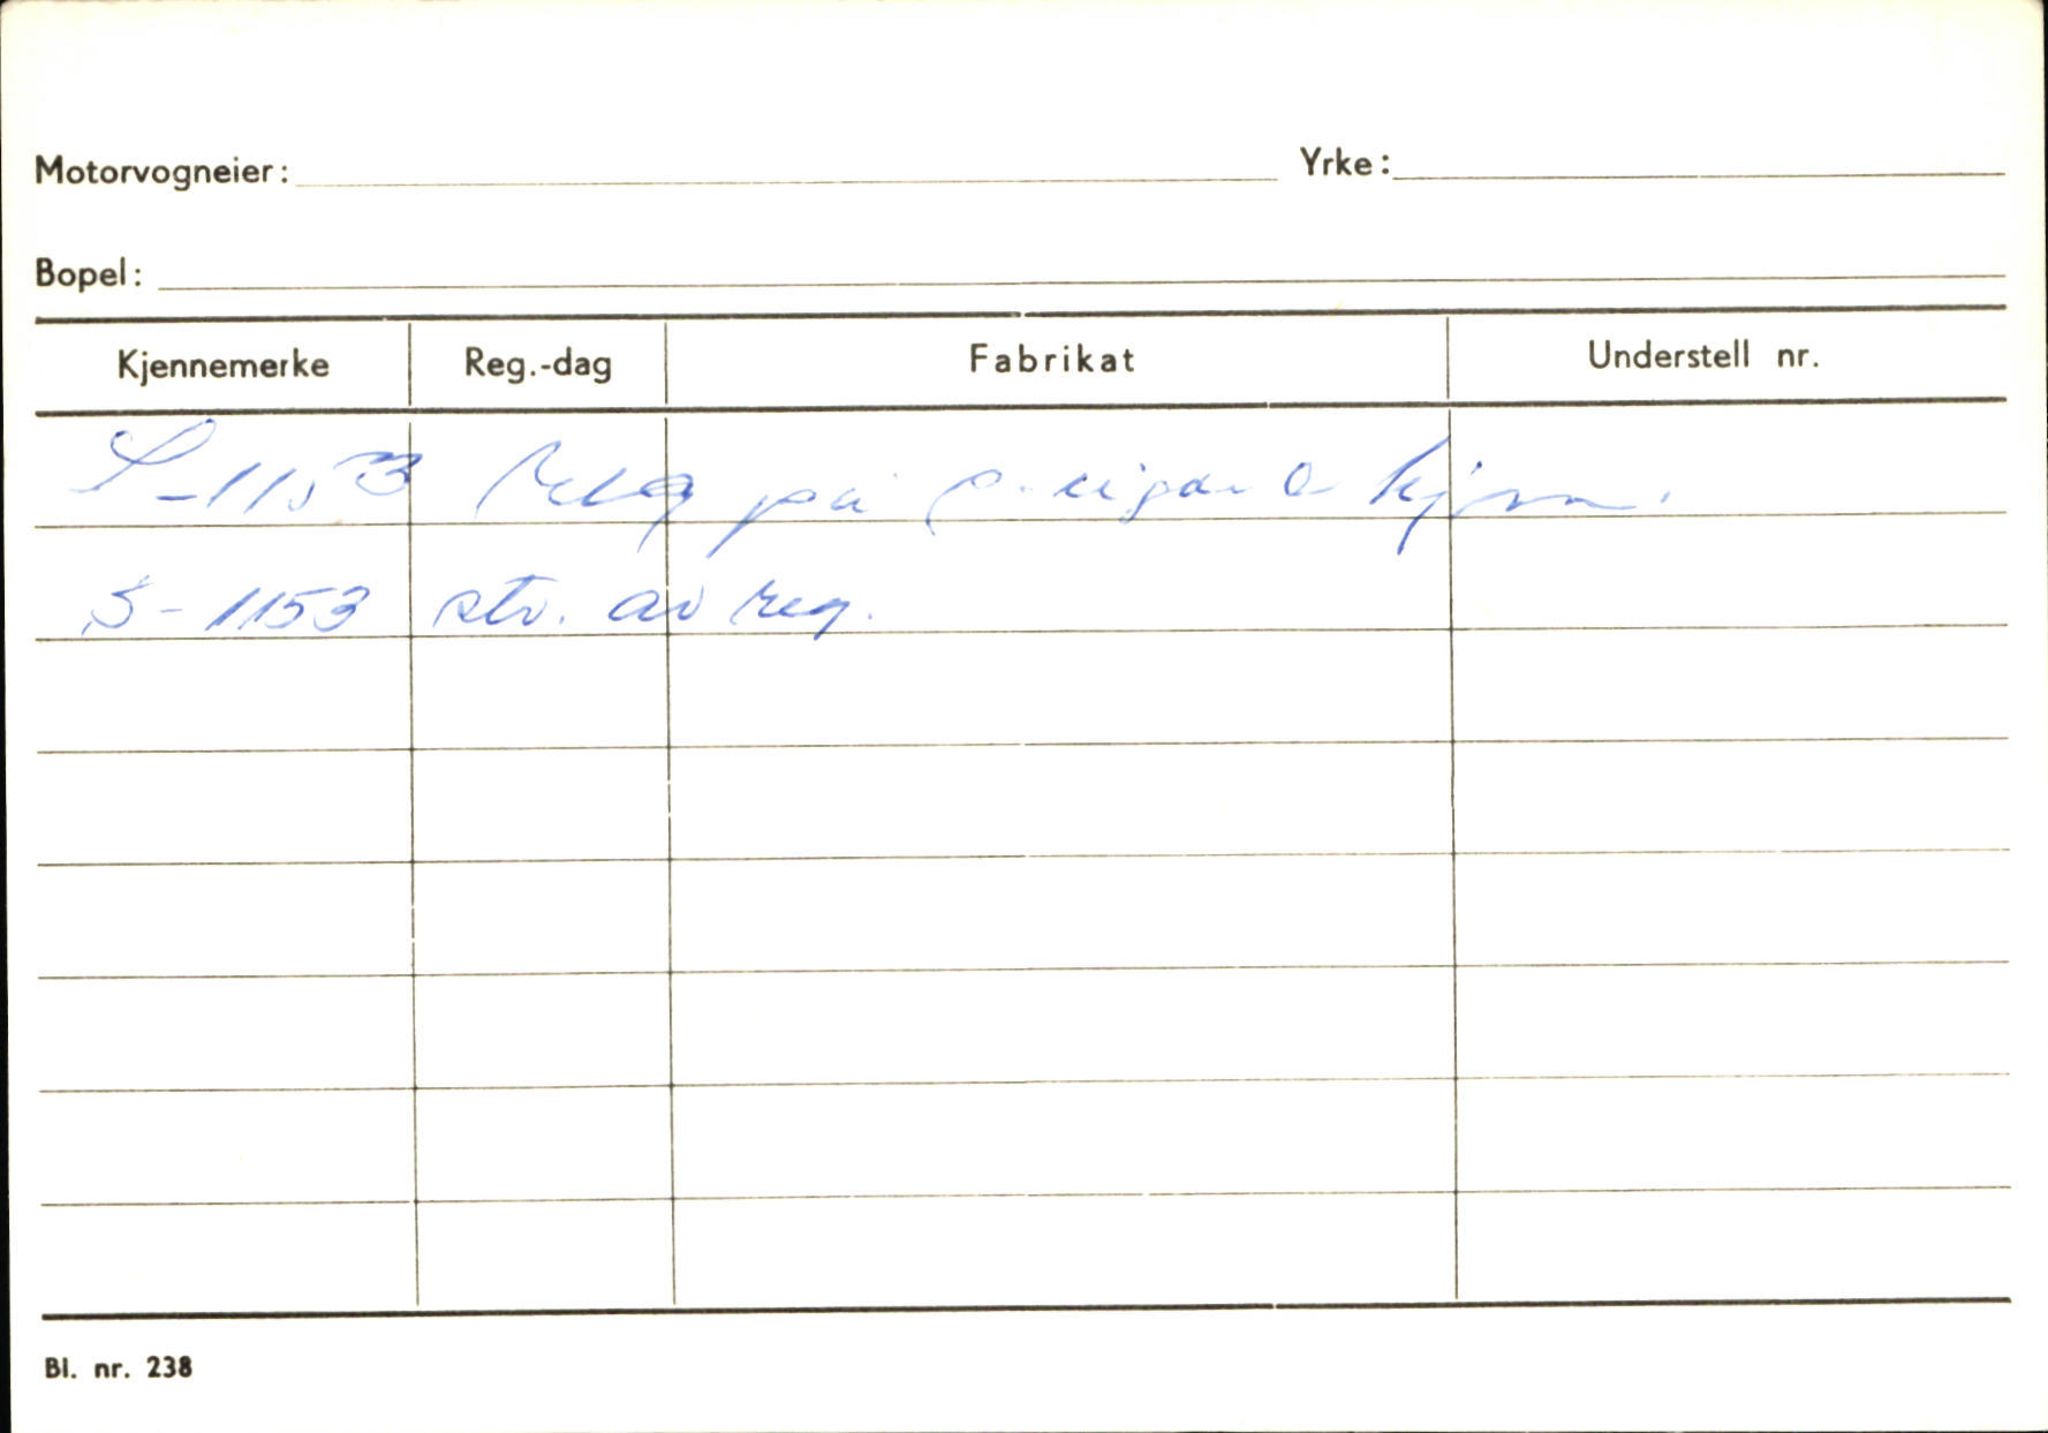 Motorvogneier: Yrke:
Bopel:
Kjennemerke Reg.-dag Fabrikat Understell nr.
S-1153 på
S-1153 str. av reg.
Bl. nr. 238